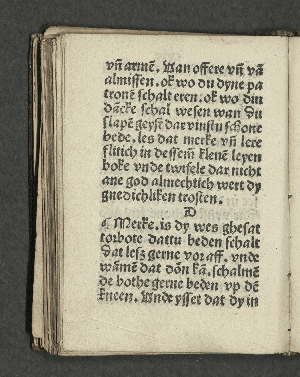 vñ armē. Van offere vñ vā
almissen. ok wo du dyne pa
tronē schalt eren. ok wo din
dācke schal wesen wan du
slapē geyst dar vinstu schone
bede. les dat merke vñ lere
flitich in dessem klenē leyen
boke vnde twifele dar nicht
ane god almechtich wert dy
gnedichliken trosten.
D
¶ Merke. is dy wes ghesat
to rbote dattu beden schalt
dat lesz gerne vor aff. vnde
wāmē dat dōn kā. schalmē
de bothe gerne beden vp dē
kneen. Vnde ysset dat dy in